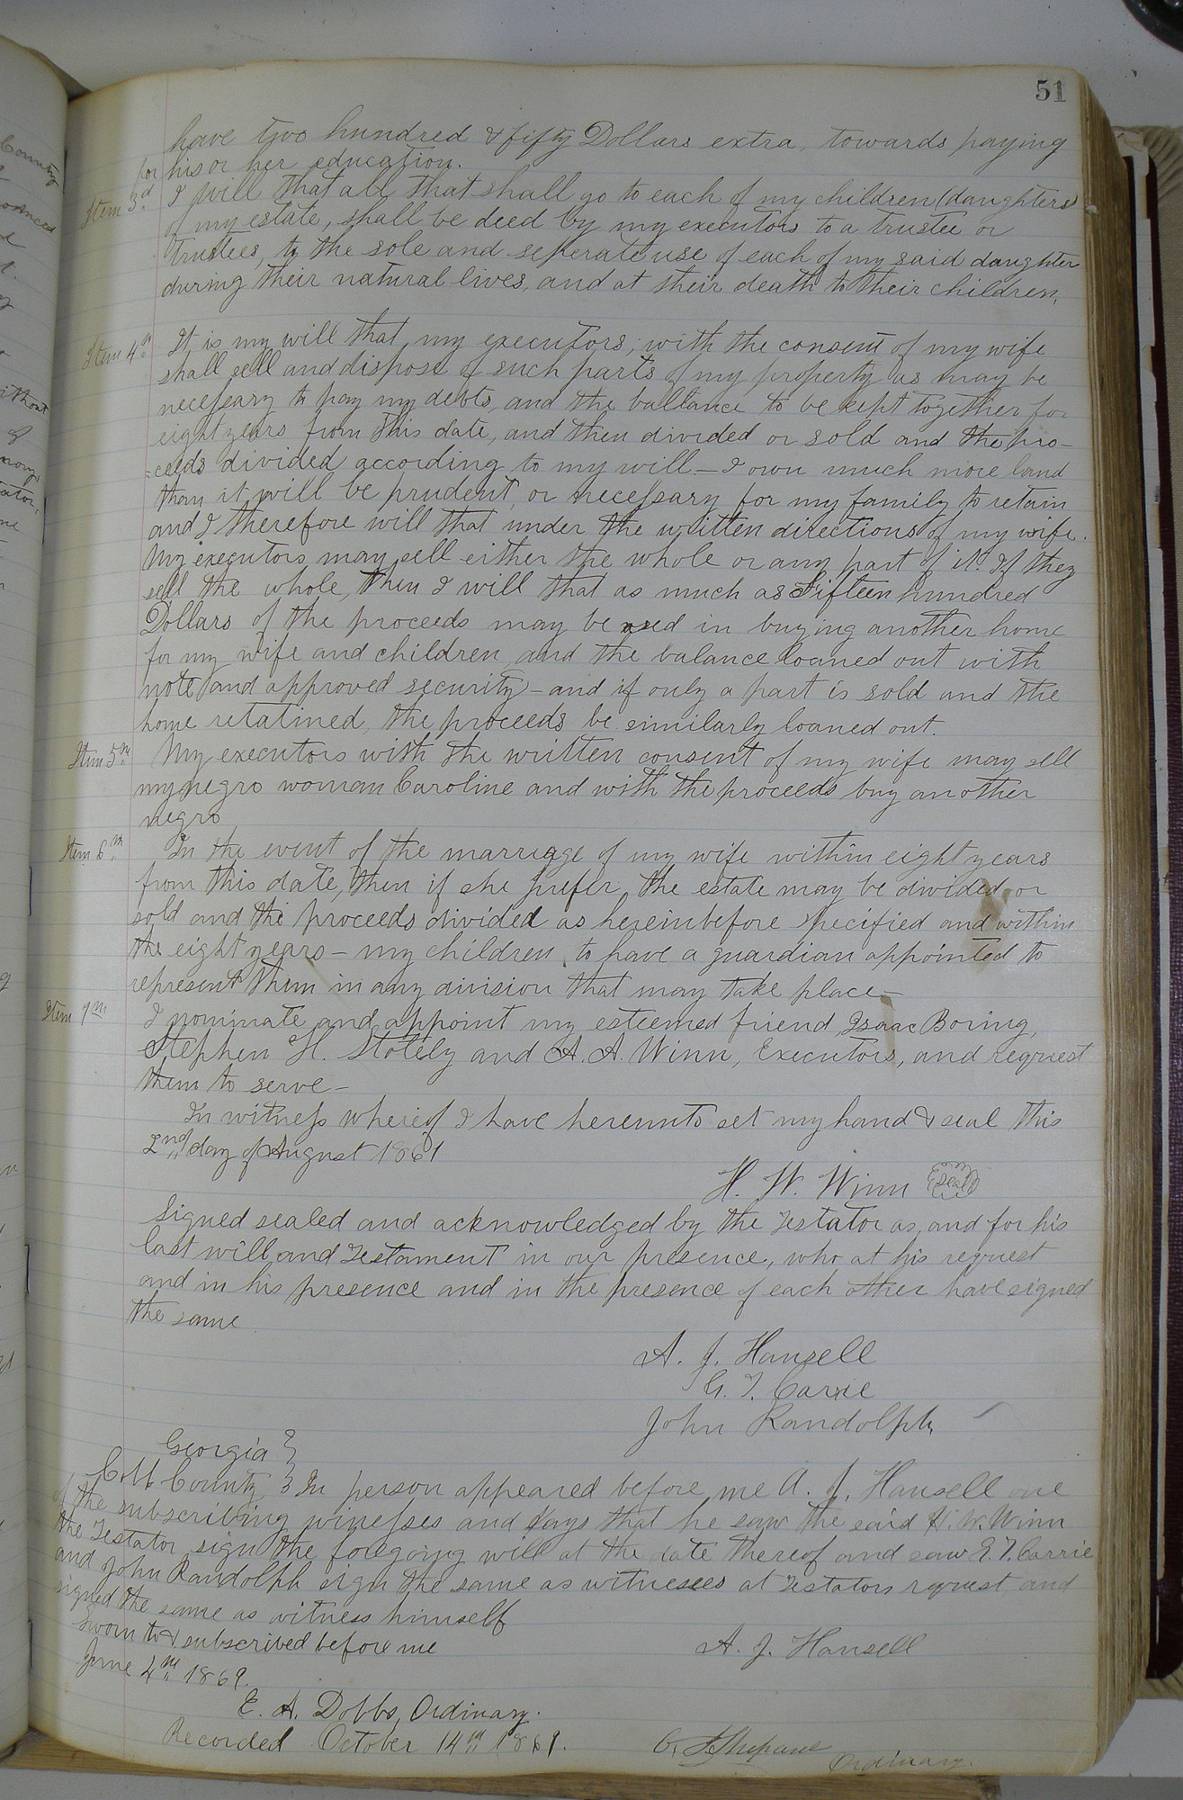 51
have two hundred & fifty Dollars extra, towards paying
for his or her education.
Item 3d I will that all that shall go to each of my children (daughters)
of my estate, shall be deed by my executors to a trustee or
trustees, to the sole and seperate use of each of my said daughter
during their natural lives, and at their death to their children,
Item 4th It is my will that, my executors, with the consent of my wife
shall sell and dispose of such parts of my property as may be
necessary to pay my debts, and the ballance to be kept together for
eight years from this date, and then divided or sold and the pro-
=ceeds divided according to my will - I own much more land
than it will be prudent or necessary for my family to retain
and I therefore will that under the written directions of my wife.
My executors may sell either the whole or any part of it. If they
sell the whole, then I will that as much as Fifteen hundred
Dollars of the proceeds may be used in buying another home
for my wife and children, and the balance loaned out with
note and approved security - and if only a part is sold and the
home retatined, the proceeds be similarly loaned out.
Item 5th My executors with the written consent of my wife may sell
my negro woman Caroline and with the proceeds buy another
negro
Item 6th In the event of the marriage of my wife within eight years
from this date, then if she prefer, the estate may be divided or
sold and the proceeds divided as hereinbefore specified and within
the eight years - my children to have a guardian appointed to
represent them in any division that may take place -
Item 7th I nominate and appoint my esteemed friend Isaac Boring,
Stephen H. Stotely and A. A. Winn, Executors, and request
them to serve -
In witness whereof I have hereunto set my hand & seal this
2nd day of August 1861
H. W. Winn (Seal)
Signed sealed and acknowledged by the Testator as, and for his
last will and Testament in our presence, who at his request
and in his presence and in the presence of each other have signed
the same
A. J. Hansell
G. T. Carrie
John Randolph
Georgia }
Cobb County } In person appeared before me A. J. Hansell one
of the subscribing winesses and says that he saw the said H. W. Winn
the Testator sign the foregoing will at the date thereof and saw G. T. Carrie
and John Randolph sign the same as witnesses at Testators request and
signed the same as witness himself
Sworn to & subscribed before me
A. J. Hansell
June 4th 1869.
E. A. Dobbs, Ordinary.
Recorded October 14th 1869.
Ordinary.